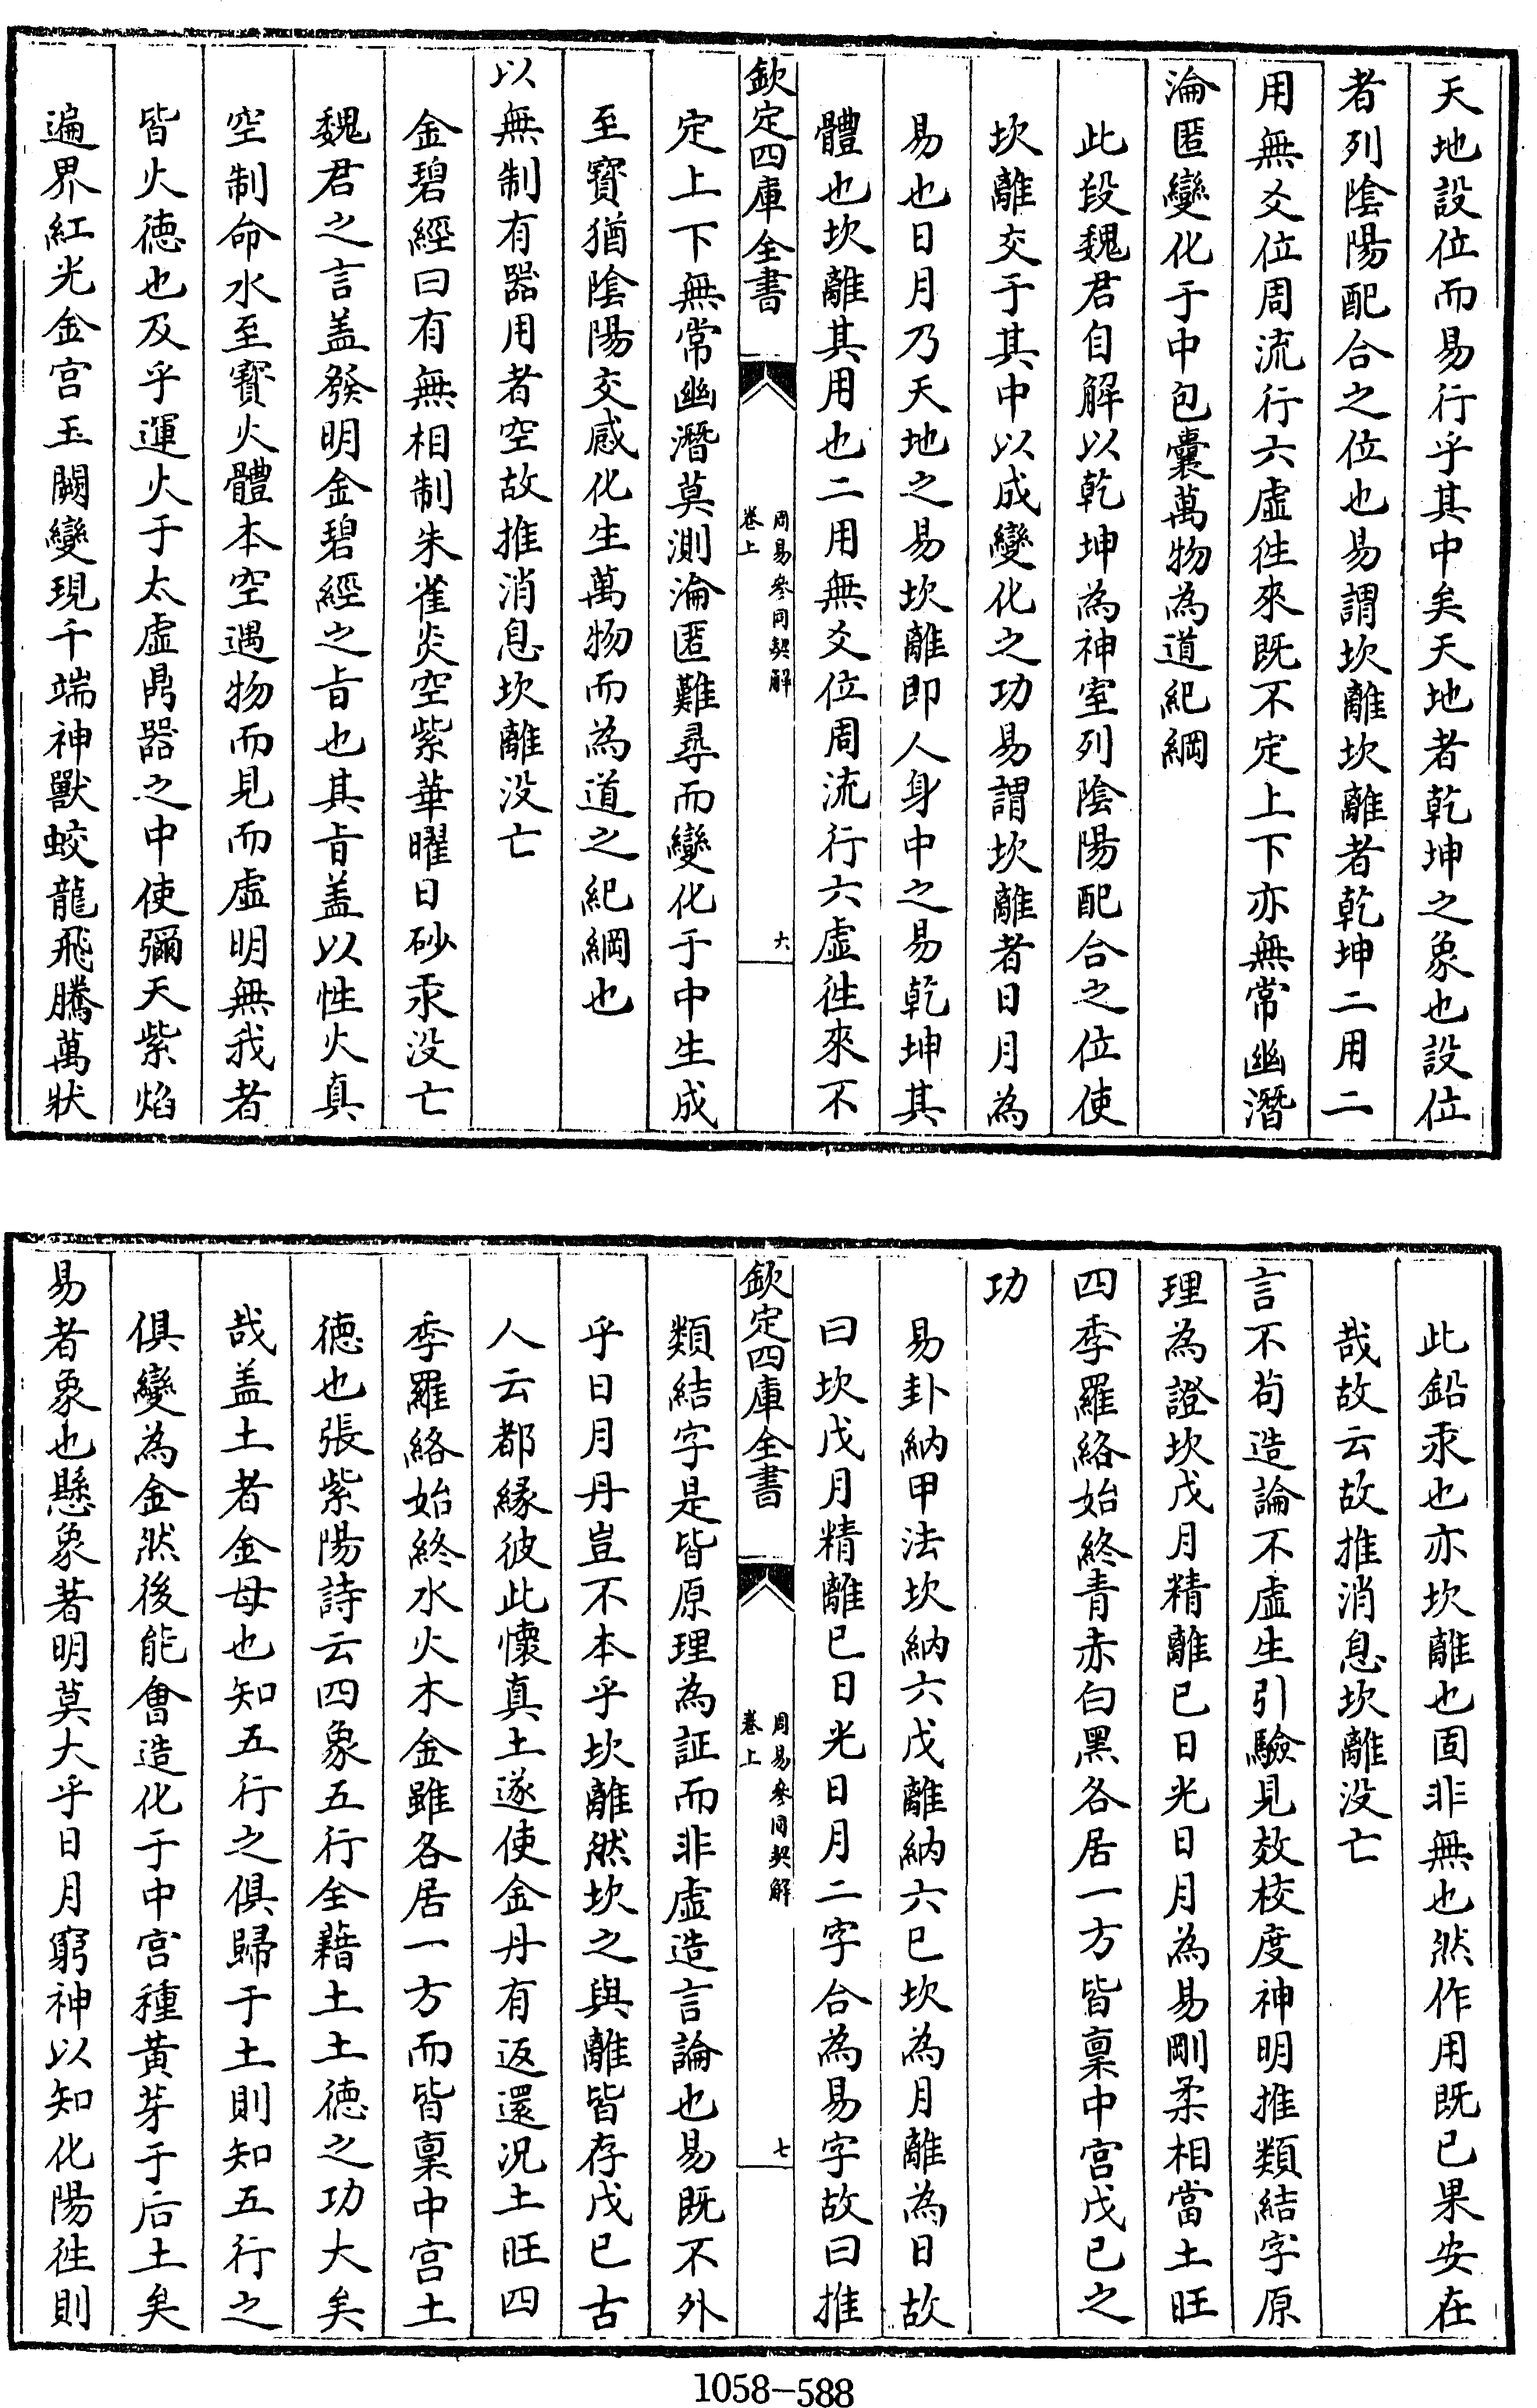 天地設位而易行乎其中矣天地者乾坤之象也設位
者列陰陽配合之位也易謂坎離坎離者乾坤二用二
用無爻位周流行六虛徃來既不定上下亦無常幽潛
淪匿變化于中包囊萬物為道紀綱
此段魏君自解以乾坤為神室列陰陽配合之位使
坎離交于其中以成變化之功易謂坎離者日月為
易也日月乃天地之易坎離即人身中之易乾坤其
體也坎離其用也二用無爻位周流行六虛徃來不
欽定四庫全書
周易參同契解
卷上
六
定上下無常幽潛莫測淪匿難尋而變化于中生成
至寳猶陰陽交感化生萬物而為道之紀綱也
以無制有器用者空故推消息坎離没亡
金碧經曰有無相制朱雀炎空紫華曜日砂汞没亡
魏君之言盖發明金碧經之㫖也其㫖盖以性火真
空制命水至寳火體本空遇物而見而虛明無我者
皆火徳也及乎運火于太虛鼎器之中使彌天紫焰
遍界紅光金宫玉闕變現千端神獸蛟龍飛騰萬狀
此鉛汞也亦坎離也固非無也然作用既已果安在
哉故云故推消息坎離没亡
言不茍造論不虛生引驗見效校度神明推類結字原
理為證坎戊月精離已日光日月為易剛柔相當土旺
四季羅絡始終青赤白黑各居一方皆禀中宫戊已之
功
易卦納甲法坎納六戊離納六已坎為月離為日故
曰坎戊月精離已日光日月二字合為易字故曰推
欽定四庫全書
周易參同契解
卷上
七
類結字是皆原理為証而非虛造言論也易既不外
乎日月丹豈不本乎坎離然坎之與離皆存戊已古
人云都縁彼此懷真土遂使金丹有返還况土旺四
季羅絡始終水火木金雖各居一方而皆禀中宫土
徳也張紫陽詩云四象五行全藉土土徳之功大矣
哉盖土者金母也知五行之俱歸于土則知五行之
俱變為金然後能㑹造化于中宫種黄芽于后土矣
易者象也懸象著明莫大乎日月窮神以知化陽徃則
1058-588